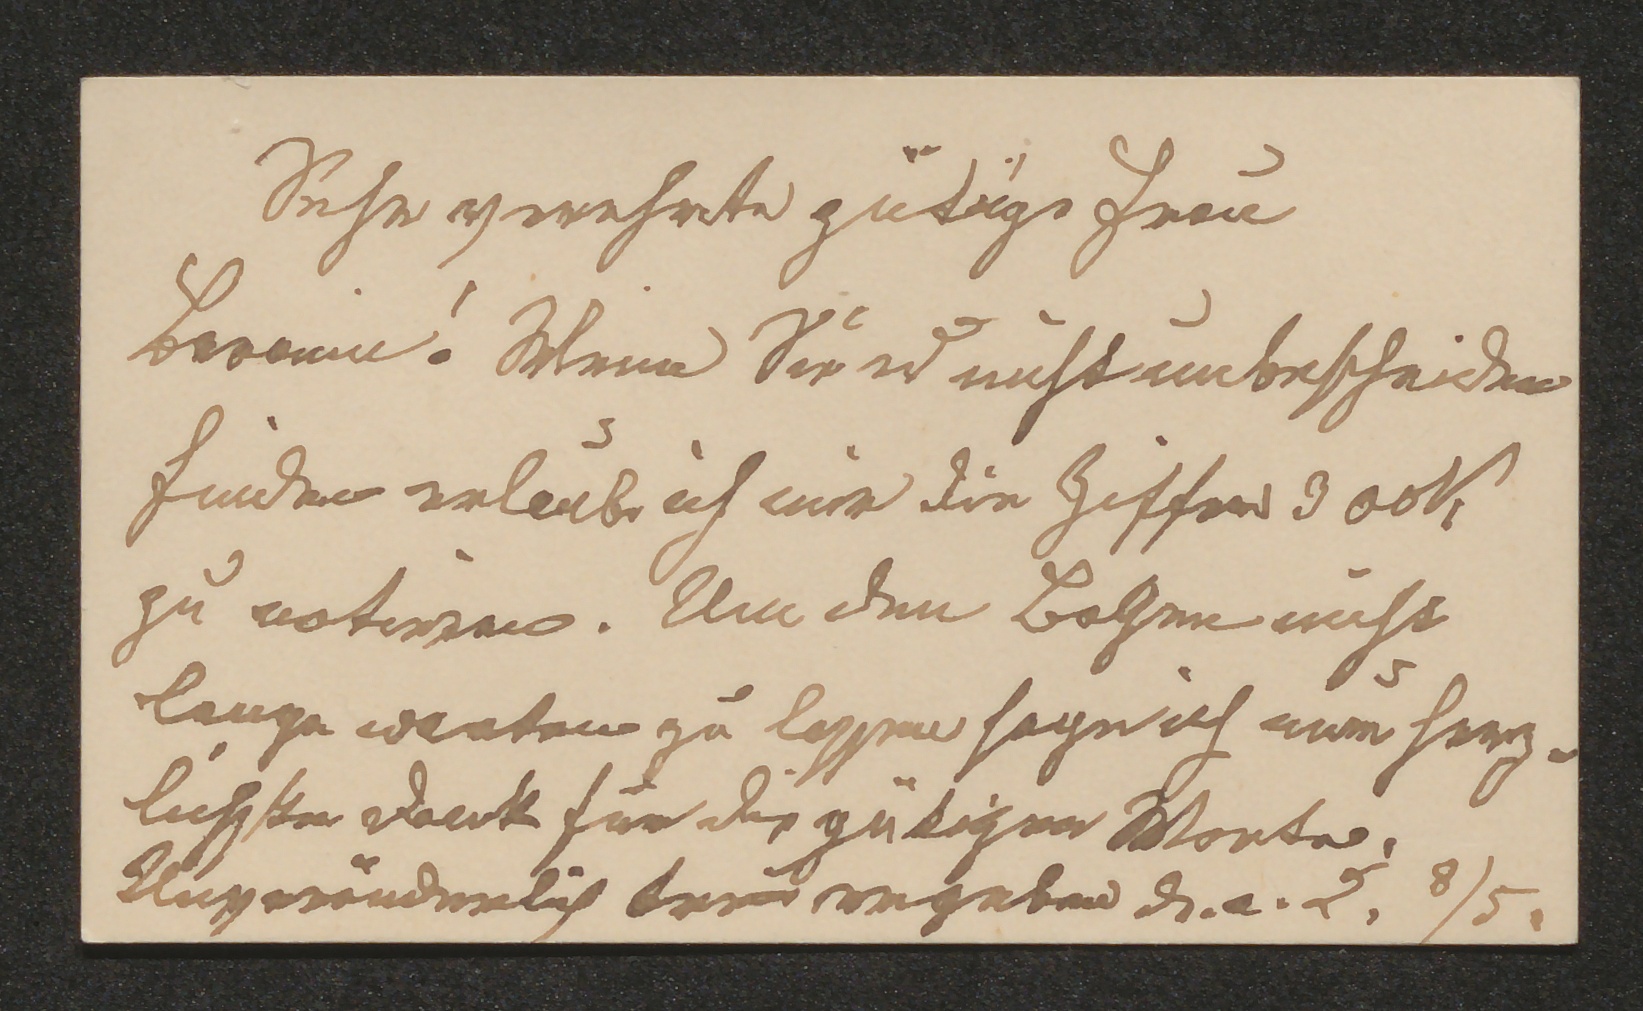 Sehr verehrte gütige Frau
Baronin! Wenn Sie es nicht unbescheiden
finden erlaube ich mir die Ziffer 300 K
zu notieren. Um den Boten nicht
lange warten zu lassen sage ich nur herz-
lichsten Dank für die gütigen Worte.
Unveränderlich treu ergeben d. a. 8/5.